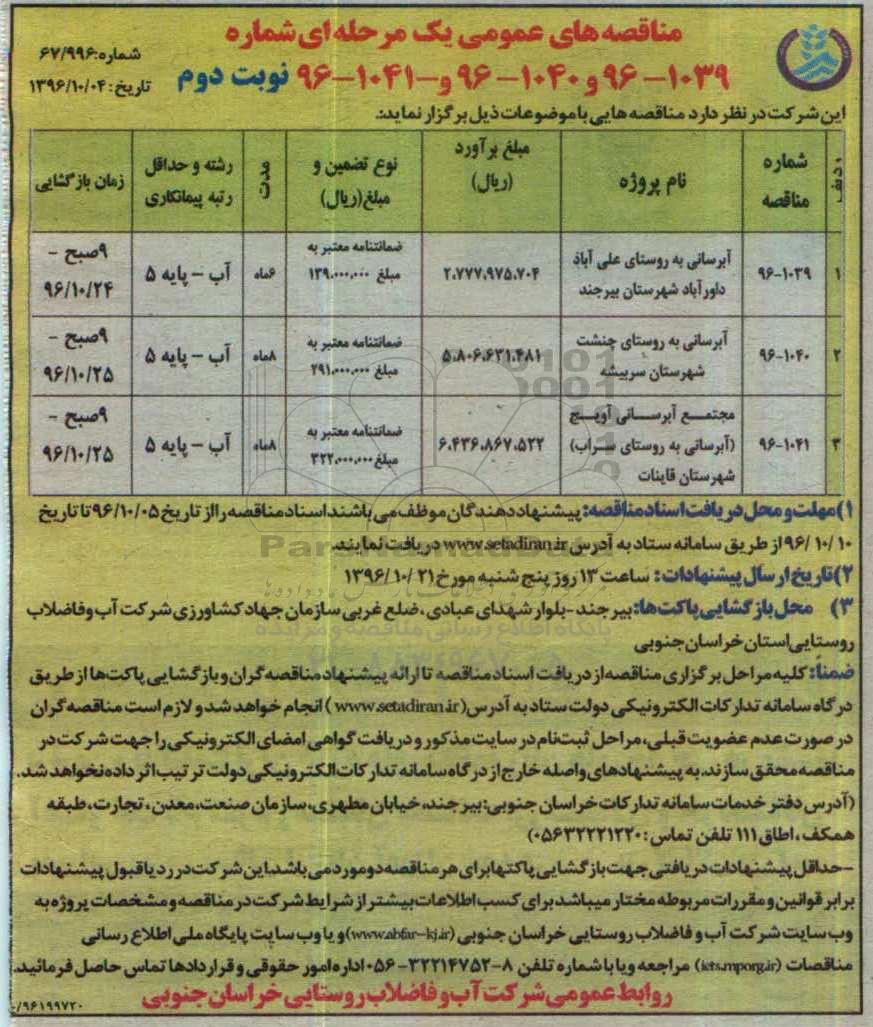 مناقصه های عمومی یک مرحله ای شماره
۹۶-۱۰۳۹ و ۱۰۴۰-۹۶ و-۱۰۴۱-۹۶ نوبت دوم
شماره: ۶۷/۹۹۶
تاریخ: ۱۳۹۶/۱۰/۰۴
این شرکت در نظر دارد مناقصه هایی با موضوعات ذیل برگزار نماید:
ردیف | شماره مناقصه | نام پروژه | مبلغ برآورد (ریال) | نوع تضمین و مبلغ(ریال) | مدت | رشته و حداقل رتبه پیمانکاری | زمان بازگشایی
۱ | ۹۶-۱۰۳۹ | آبرسانی به روستای علی آباد داورآباد شهرستان بیرجند | ۲.۷۷۷.۹۷۵.۷۰۴ | ضمانتنامه معتبر به مبلغ ۱۳۹.۰۰۰.۰۰۰ | ۶ماه | آب - پایه ۵ | ۹صبح - ۹۶/۱۰/۲۴
۲ | ۹۶-۱۰۴۰ | آبرسانی به روستای چنشت شهرستان سربیشه | ۵.۸۰۶.۶۳۱.۴۸۱ | ضمانتنامه معتبر به مبلغ ۲۹۱.۰۰۰.۰۰۰ | ۸ماه | آب - پایه ۵ | ۹صبح - ۹۶/۱۰/۲۵
۳ | ۹۶-۱۰۴۱ | مجتمع آبرسانی آویج (آبرسانی به روستای سراب) شهرستان قاینات | ۶.۴۳۶.۸۶۷.۵۲۲ | ضمانتنامه معتبر به مبلغ ۳۲۲.۰۰۰.۰۰۰ | ۸ماه | آب - پایه ۵ | ۹صبح - ۹۶/۱۰/۲۵
۱)مهلت و محل دریافت اسناد مناقصه: پیشنهاد دهندگان موظف می باشند اسناد مناقصه را از تاریخ ۹۶/۱۰/۰۵ تا تاریخ
۹۶/ ۱۰/ ۱۰ از طریق سامانه ستاد به آدرس www.setadiran.ir دریافت نمایند.
۲)تاریخ ارسال پیشنهادات: ساعت ۱۳ روز پنج شنبه مورخ ۲۱/ ۱۰/ ۱۳۹۶
۳) محل بازگشایی پاکت ها: بیرجند-بلوار شهدای عبادی، ضلع غربی سازمان جهاد کشاورزی شرکت آب و فاضلاب
روستایی استان خراسان جنوبی
ضمناً: کلیه مراحل برگزاری مناقصه از دریافت اسناد مناقصه تا ارائه پیشنهاد مناقصه گران و بازگشایی پاکت ها از طریق
درگاه سامانه تدارکات الکترونیکی دولت ستاد به آدرس( www.setadiran.ir ) انجام خواهد شد و لازم است مناقصه گران
در صورت عدم عضویت قبلی، مراحل ثبت نام در سایت مذکور و دریافت گواهی امضای الکترونیکی را جهت شرکت در
مناقصه محقق سازند. به پیشنهادهای واصله خارج از درگاه سامانه تدارکات الکترونیکی دولت ترتیب اثر داده نخواهد شد.
(آدرس دفتر خدمات سامانه تدارکات خراسان جنوبی: بیرجند، خیابان مطهری، سازمان صنعت، معدن، تجارت، طبقه
همکف، اطاق ۱۱۱ تلفن تماس: ۰۵۶۳۲۲۲۱۲۲۰)
-حداقل پیشنهادات دریافتی جهت بازگشایی پاکتها برای هر مناقصه دو مورد می باشد. این شرکت در رد یا قبول پیشنهادات
برابر قوانین و مقررات مربوطه مختار میباشد. برای کسب اطلاعات بیشتر از شرایط شرکت در مناقصه و مشخصات پروژه به
وب سایت شرکت آب و فاضلاب روستایی خراسان جنوبی (www.abfar-kj.ir) و یا وب سایت پایگاه ملی اطلاع رسانی
مناقصات (iets.mporg.ir) مراجعه و یا با شماره تلفن ۸-۳۲۲۱۴۷۵۲-۰۵۶ اداره امور حقوقی و قراردادها تماس حاصل فرمائید.
روابط عمومی شرکت آب و فاضلاب روستایی خراسان جنوبی
/۹۶۱۹۹۷۲۰